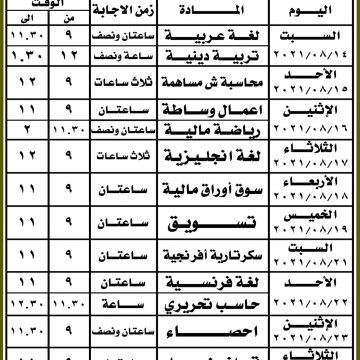 اليوم المـــادة زمن الاجابة الوقت
من الى
السبت لغة عربية ساعتان ونصف ٩ ١١.٣٠
٢٠٢١/٠٨/١٤ تربية دينية ساعة ونصف ١٢ ١.٣٠
الأحد
٢٠٢١/٠٨/١٥ محاسبة ش مساهمة ثلاث ساعات ٩ ١٢
الإثنين اعمال وساطة ساعتـــان ٩ ١١
٢٠٢١/٠٨/١٦ رياضة مالية ساعتان ونصف ١١.٣٠ ٢
الثلاثاء
٢٠٢١/٠٨/١٧ لغة انجليزية ثلاث ساعات ٩ ١٢
الأربعاء
٢٠٢١/٠٨/١٨ سوق أوراق مالية ساعتـــان ٩ ١١
الخميس
٢٠٢١/٠٨/١٩ تســـويق ساعتـــان ٩ ١١
السبت
٢٠٢١/٠٨/٢١ سكرتارية أفرنجية ساعتـــان ٩ ١١
الأحد لغة فرنسية ساعتـــان ٩ ١١
٢٠٢١/٠٨/٢٢ حاسب تحريري ساعـــة ١١.٣٠ ١٢.٣٠
الإثنين
٢٠٢١/٠٨/٢٣ احصـــاء ساعتان ونصف ٩ ١١.٣٠
الثلاثاء